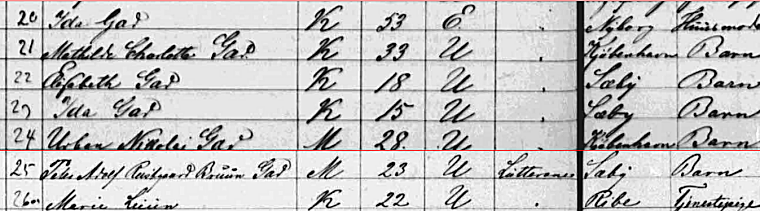 20 Ida Gad K 53 E . Nyborg Huusmoder
21 Mathilde Charlotte Gad K 33 U . Kjøbenhavn Barn
22 Elisabeth Gad K 18 U . Sæby Barn
23 Ida Gad K 15 U . Sæby Barn
24 Urban Nikolai Gad M 28. U . Kjøbenhavn Barn
25 Peter Adolf Bruun Gad M 23 U Lutteraner Sæby Barn
26 Marie K 22 U . Ribe Tjenestepige